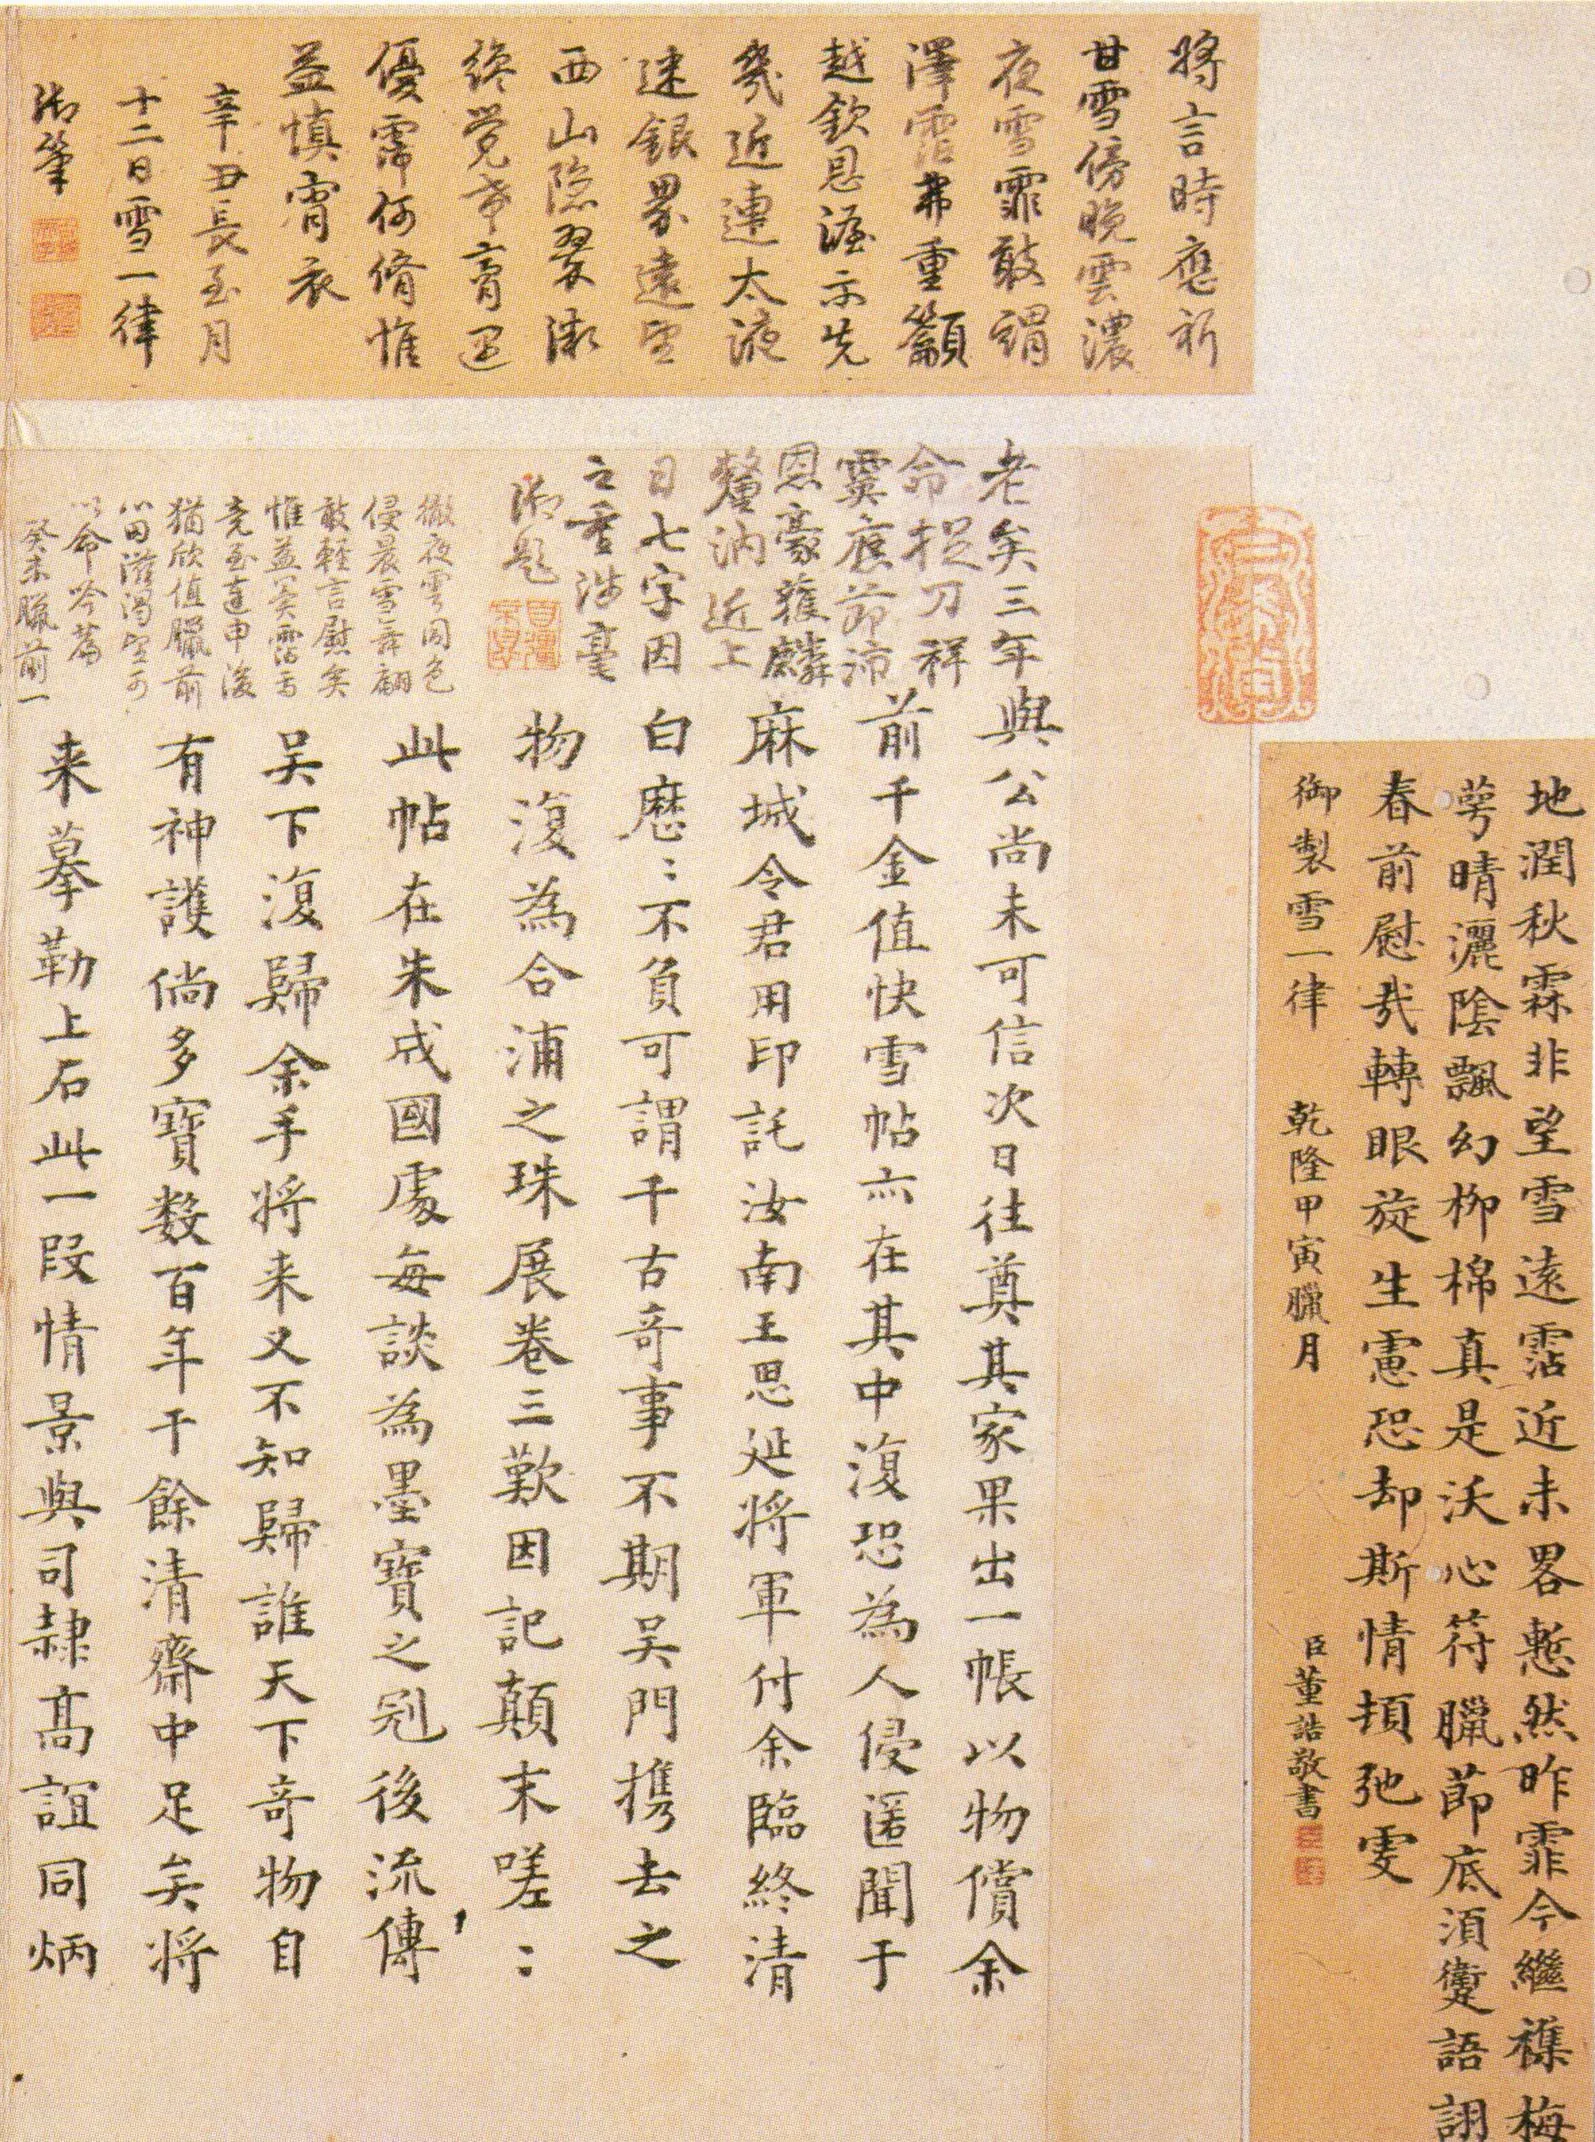 地潤秋霖非望雪遠霑近未畧慙然昨霏今繼襍梅
萼晴灑陰飄幻柳棉真是沃心符臘節底須蘷語詡
春前慰哉轉眼旋生慮恐却斯情頓弛雯
御製雪一律 乾隆甲寅臘月 臣董誥敬書
將言時應祈
甘雪傍晚雲濃
夜雪霏敢謂
澤霑弗重籲
越欽恩渥示先
幾近連太液
迷銀界遠望
西山隱翠微
終覺希膏還
優霈何脩惟
益慎宵衣
辛丑長至月
十二日雪一律
御筆
老矣三年
命捉刀祥
霙應節沛
恩豪蕹麟
釐汭近上
日七字因
之重涉毫
御題
徹夜雲同色
侵晨雪舞翩
敢輕言慰矣
惟益冀霑焉
竟至連申後
猶欣值臘前
小田滋渴望可
以命吟篇
癸未臘前一
與公尚未可信次日往奠其家果出一帳以物償余
前千金值快雪帖亦在其中復恐為人侵匿聞于
麻城令君用印託汝南王思延將軍付余臨終清
白歷〻不負可謂千古奇事不期吳門攜去之
物復為合浦之珠展卷三歎因記顛末嗟〻
此帖在朱成國處每談為墨寶之冠後流傳
吳下復歸余手將來又不知歸誰天下奇物自
有神護倘多寶數百年于餘清齋中足矣將
来摹勒上石此一段情景與司隷高誼同炳